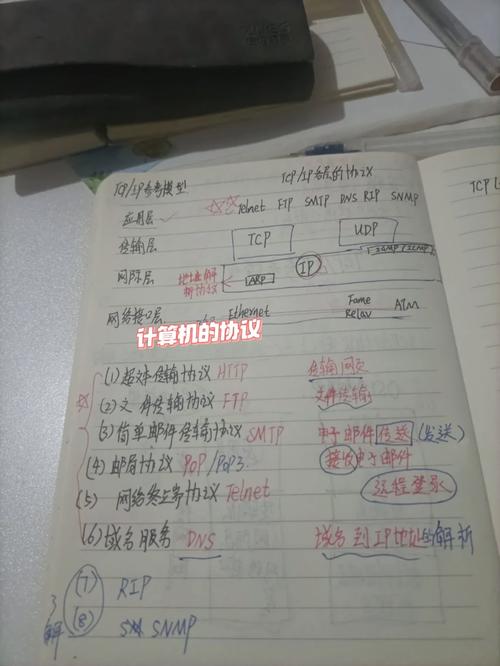 TCP/IP参考模型 TCP/IP各层的协议
应用层 Telnet FTP SMTP DNS RIP SNMP
传输层 TCP UDP
IGMP ICMP
网际层 地址解析协议 ARP IP
网络接口层 Ethernet Fame Relay ATM
计算机的协议
(1) 超文本传输协议 HTTP 传输网页
(2) 文件传输协议 FTP 文件传输
(3) 简单邮件传输协议 SMTP 电子邮件传送 (发送)
(4) 邮局协议 POP/POP3 接收电子邮件
(5) 网络终端协议 Telnet 远程登录
(6) 域名服务 DNS 域名到IP地址的解析
(7) RIP
(8) SNMP
了解
TCP